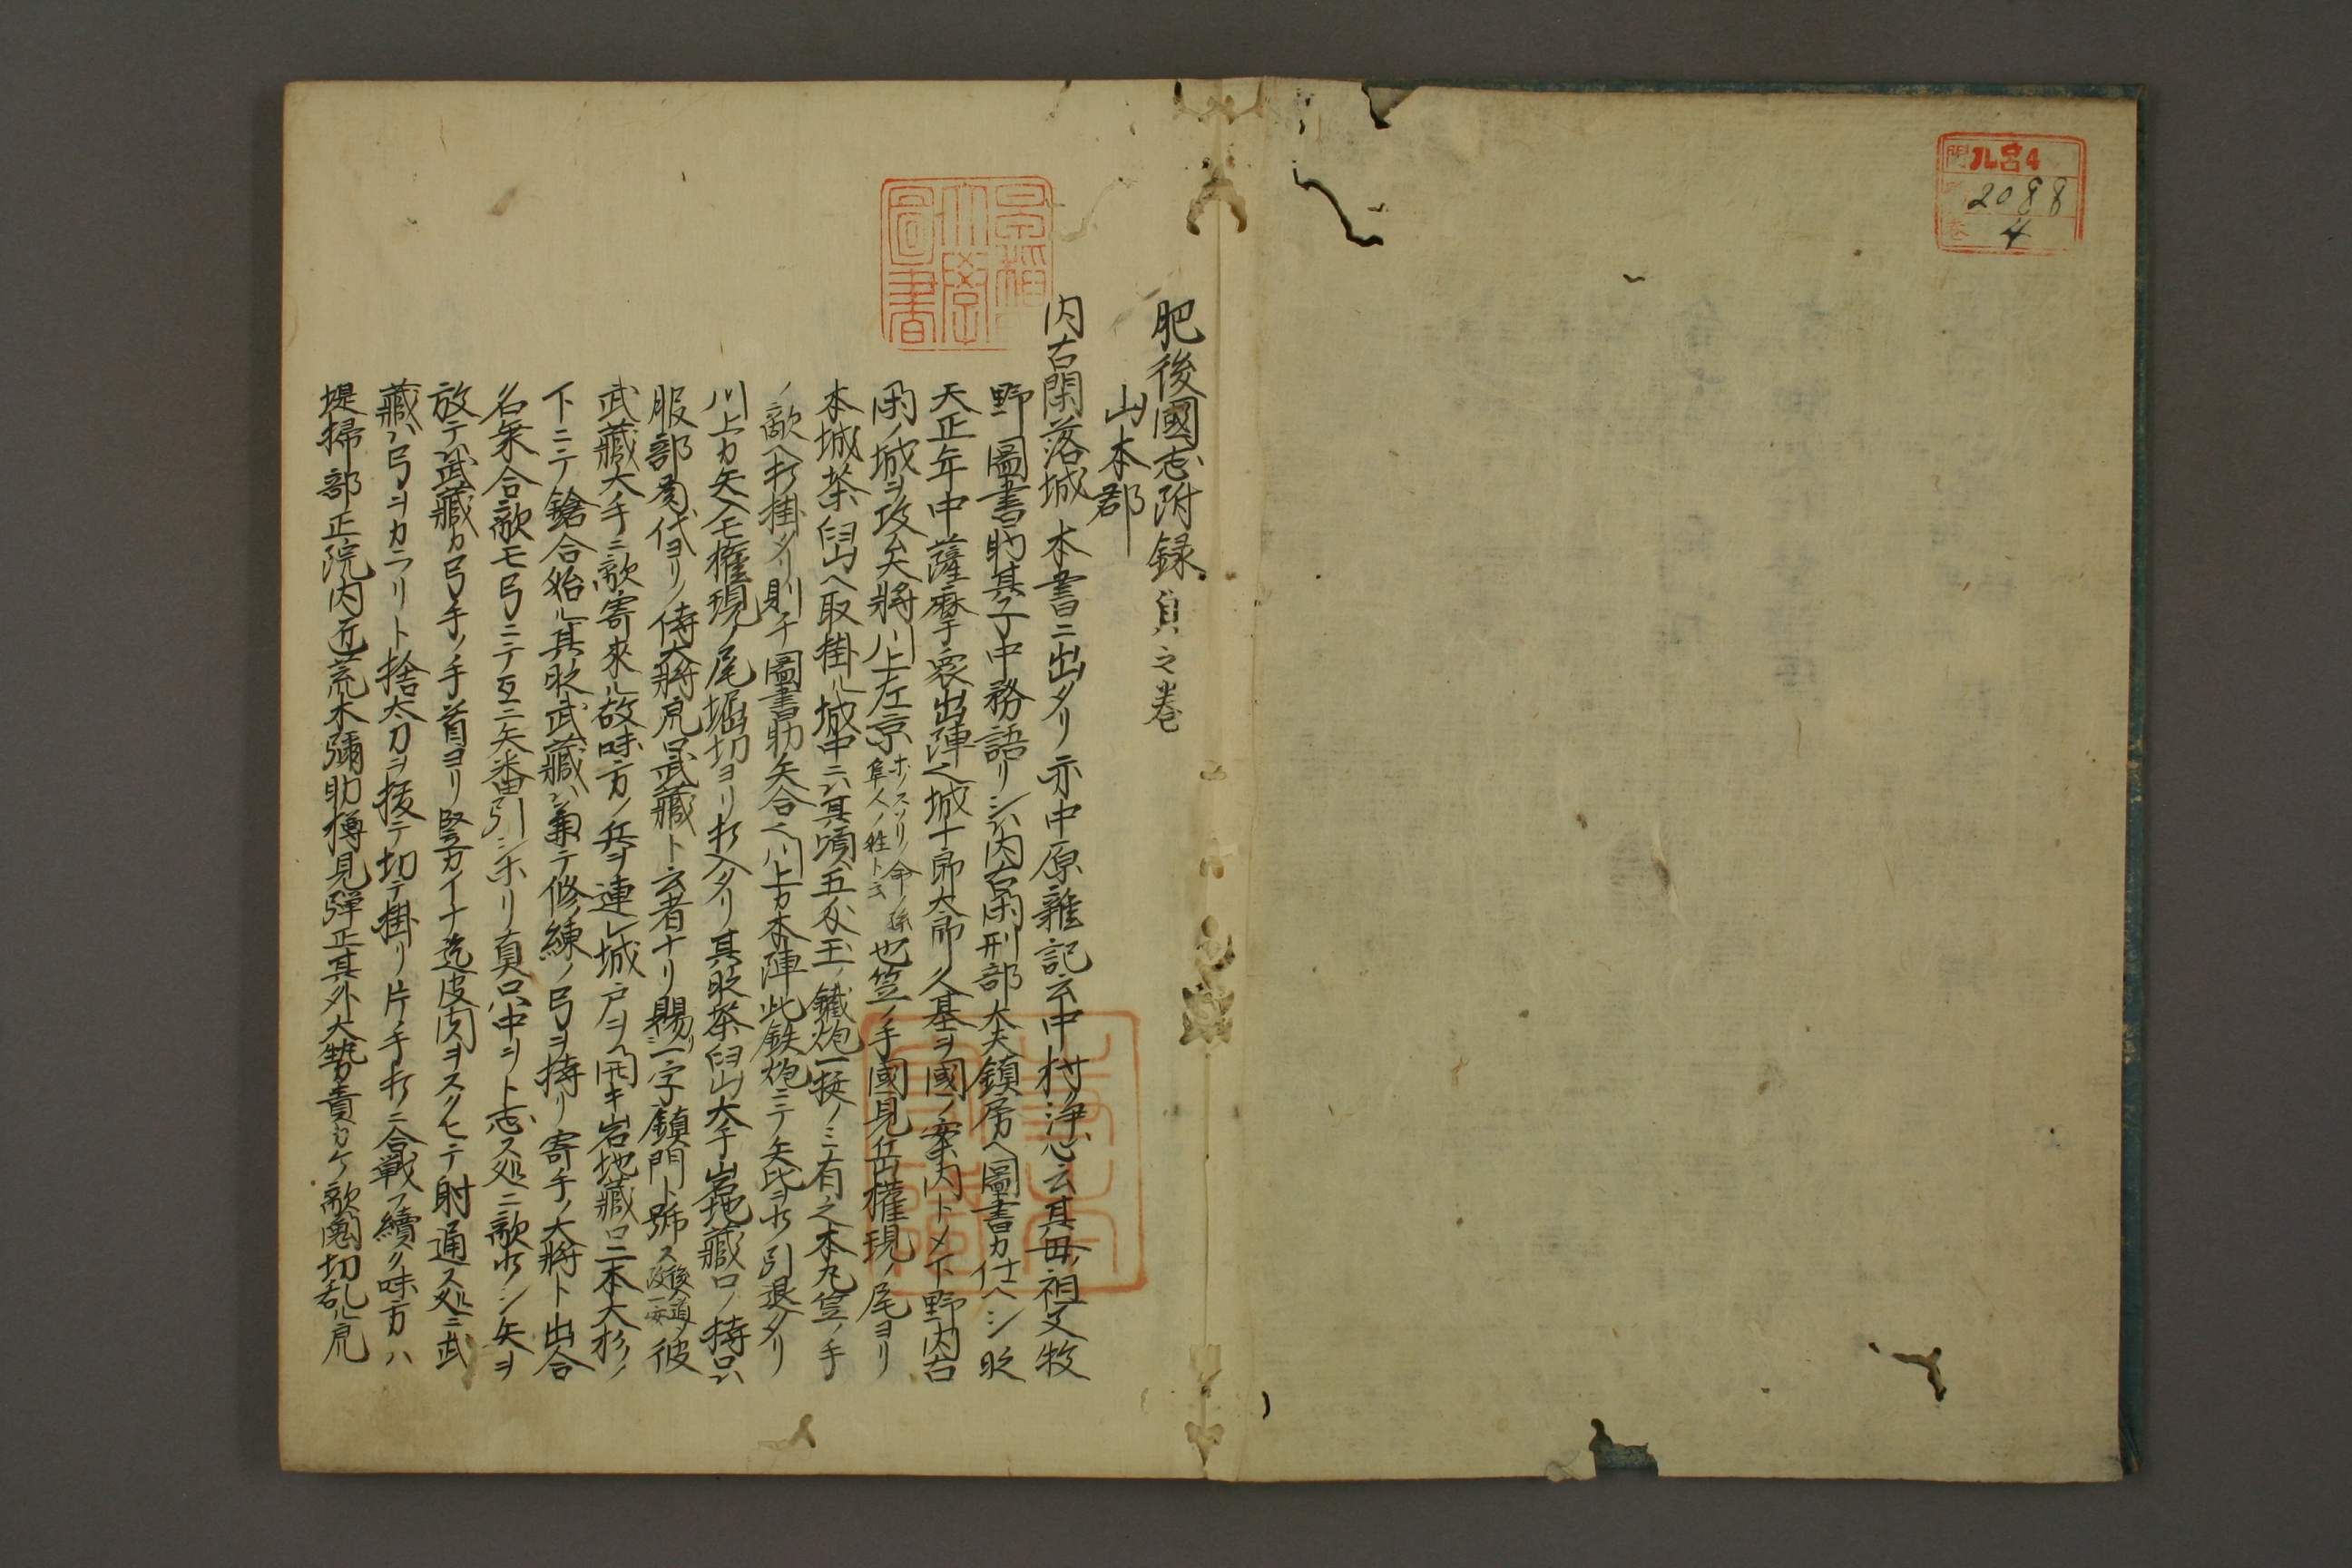 門 ル呂4
2088
卷 4
肥後國志附録 貞之巻
山本郡
内古閑落城 本書ニ出タリ亦中原雜記云中村浄心云其毋ノ祖父牧
野圖書助其子中務語リシハ内古閑刑部大夫鎮房ヘ圖書カ仕ヘシ时
天正年中薩摩ノ衆出陣之城十郎太郎久基ヲ國ノ案内トメ下野内古
閑ノ城ヲ攻矢將ハ川上左京也笠ノ手國見岳權現ノ尾ヨリ
ホノスソリノ命ノ孫
隼人ノ姓ト云
本城茶臼山ヘ取掛ル城中ニハ其頃五匁玉ノ鐵炮一挺ノミ有之本丸笠ノ手
ノ敵ヘ打掛タリ則チ圖書助矢合之川上カ本陣此鉄炮ニテ矢比ヲ打引退タリ
川上カ矢入モ權現ノ尾堀切ヨリ打入タリ其时茶臼山大手岩地藏口ノ持口ハ
服部菊代ヨリノ侍大將鹿口武藏ト云者ナリ賜一字鎮門ト號ス彼
後入道メ
改一安
武藏大手ニ敵寄來ル故味方ノ兵ヲ連レ城戸ヲ開キ岩地藏口二本大杉ノ
下ニテ鎗合始ル其时武藏ハ兼テ修練ノ弓ヲ持リ寄手ノ大將ト出合
名乗合敵モ弓ニテ互ニ矢番引シホリ真只中ヲト志ス処ニ敵ホノシ矢ヲ
放テハ武藏カ弓手ノ手首ヨリ竪カイナ迄皮肉ヲスクヒテ射通ス処ニ武
藏ハ弓ヲカラリト捨太刀ヲ拔テ切テ掛リ片手打ニ合戦フ續ク味方ハ
堤掃部正院内匠荒木彌助樽見弾正其外大勢責カケ敵
切乱ル
圖書